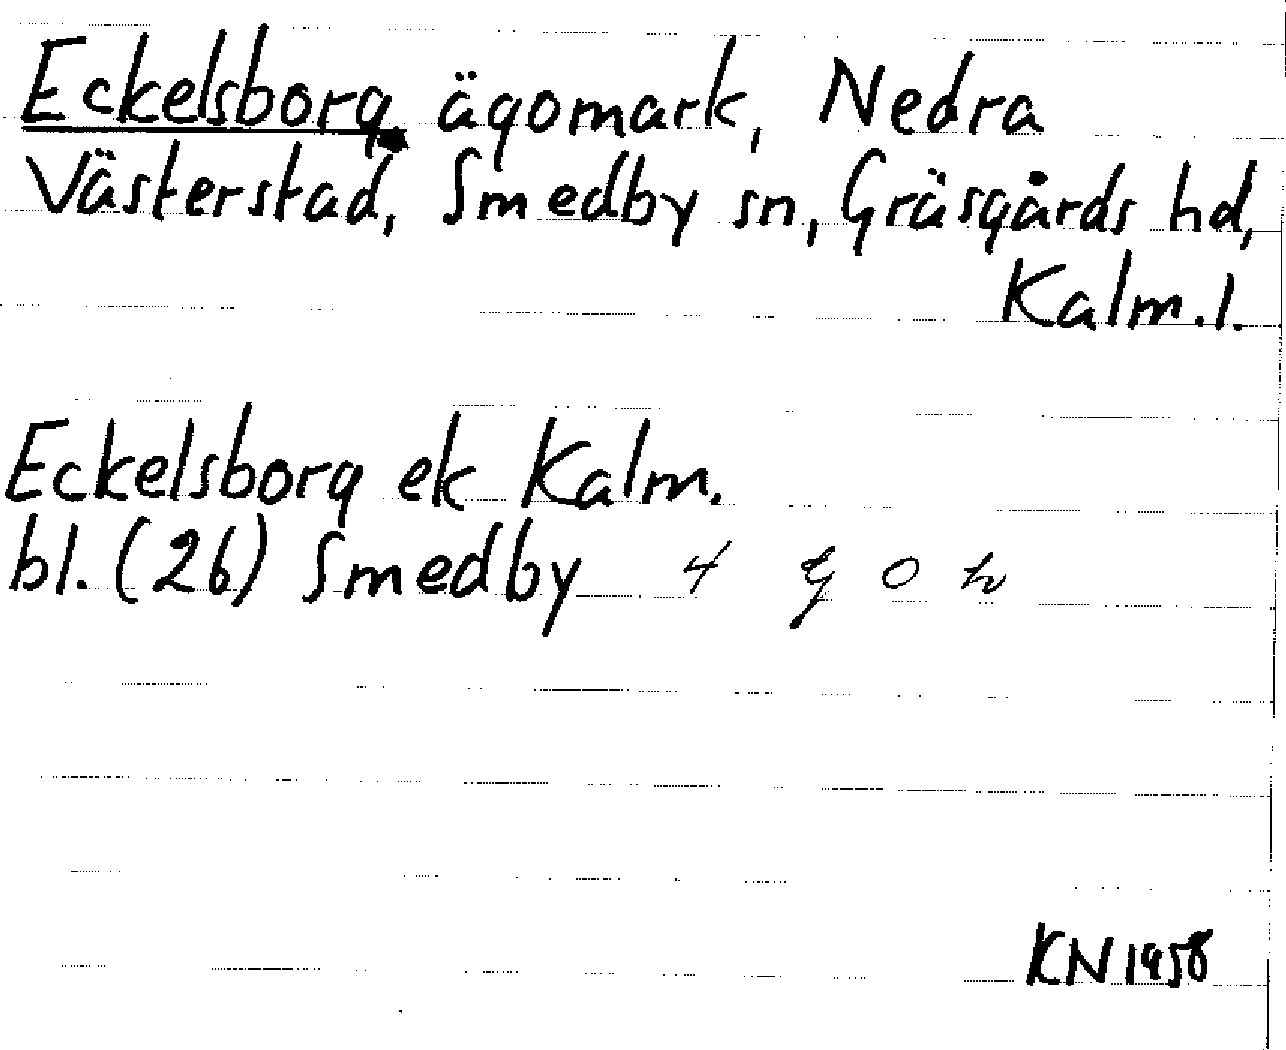 Eckelsborg ägomark, Nedra
Västerstad, Smedby sn, Gräsgårds hd,
Kalm. l.
Eckelsborg ek Kalm.
bl. (26) Smedby 4 g o h
KN 1958